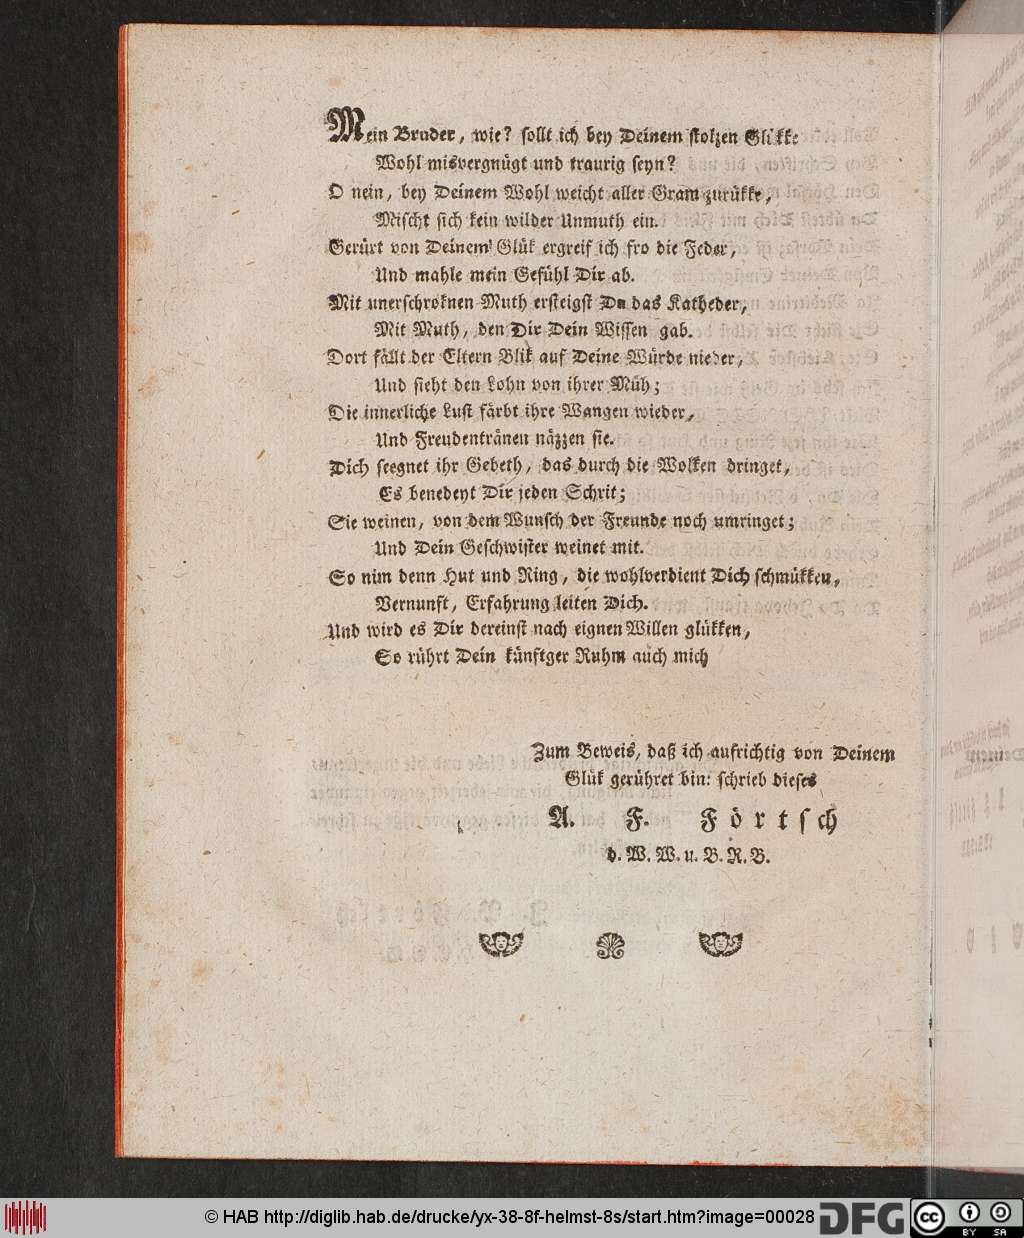 Mein Bruder, wie? sollt ich bey Deinem stolzen Glükke
Wohl misvergnügt und traurig seyn?
O nein, bey Deinem Wohl weicht aller Gram zurükke,
Mischt sich kein wilder Unmuth ein.
Gerürt von Deinem Glük ergreif ich fro die Feder,
Und mahle mein Gefühl Dir ab.
Mit unerschroknen Muth ersteigst Du das Katheder,
Mit Muth, den Dir Dein Wissen gab.
Dort fällt der Eltern Blik auf Deine Würde nieder,
Und sieht den Lohn von ihrer Müh;
Die innerliche Lust färbt ihre Wangen wieder,
Und Freudentränen näzzen sie.
Dich seegnet ihr Gebeth, das durch die Wolken dringet,
Es benedeyt Dir jeden Schrit;
Sie weinen, von dem Wunsch der Freunde noch umringet;
Und Dein Geschwister weinet mit.
So nim denn Hut und Ring, die wohlverdient Dich schmükken,
Vernunft, Erfahrung leiten Dich.
Und wird es Dir dereinst nach eignen Willen glükken,
So rührt Dein künftger Ruhm auch mich
Zum Beweis, daß ich aufrichtig von Deinem
Glük gerühret bin: schrieb dieses
A. F. Förtsch
d. W. W. u. B. R. B.
© HAB http://diglib.hab.de/drucke/yx-38-8f-helmst-8s/start.htm?image=00028
DFG
cc BY SA